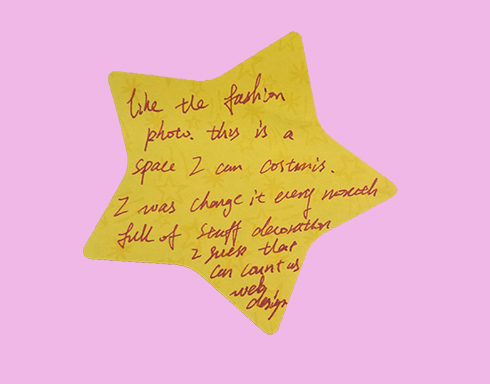 like the fashion
photo. this is a
space I can costomis.
I was change it every month
full of stuff decoration
I guess that
can count as
web
design